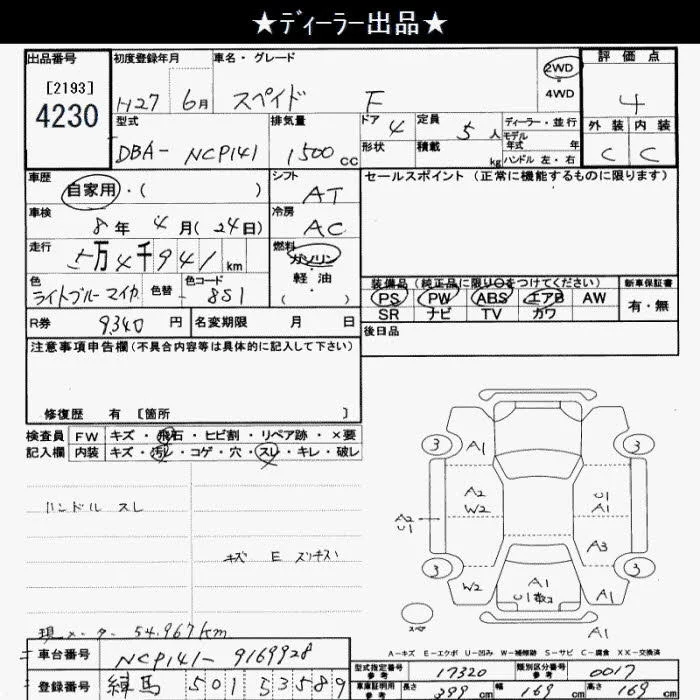 ★ディーラー出品★
出品番号 [2193] 4230
初度登録年月 H27 6月
車名・グレード スペイド F
2WD・4WD
評価点 4
外装 C 内装 C
型式 DBA- NCP141
排気量 1500cc
ドア 4
形状
定員 5人
積載 kg
ディーラー・並行
モデル年式 年
ハンドル 左・右
車歴 自家用・( )
シフト AT
セールスポイント(正常に機能するものに限ります)
車検 8年 4月(24日)
冷房 AC
走行 5万4千941km
燃料 ガソリン・軽油 ( )
色 ライトブルーマイカ 色替 色コード 8S1
装備品(純正品に限り○をつけてください)
PS PW ABS エアB AW
SR ナビ TV カワ
新車保証書 有・無
R券 9340円 名変期限 月 日
後日品
注意事項申告欄(不具合内容等は具体的に記入して下さい)
修復歴 有 [箇所 ]
検査員記入欄 FW キズ・飛石・ヒビ割・リペア跡・×要
内装 キズ・汚レ・コゲ・穴・スレ・キレ・破レ
ハンドル スレ
キズ E スリキズ
現メーター 54,967km
3 A1 3
A2 W2 U1 A1
A2 U1
A3
3 W2 A1 U1数コ A1 3
スペア
A1
A-キズ E-エクボ U-凹み W-補修跡 S-サビ C-腐食 XX-交換済
車台番号 NCP141-9169928
登録番号 練馬 501 ミ 3589
型式指定番号 参考 17320 類別区分番号 参考 0017
車庫証明用 参考 長さ 399cm 幅 169cm 高さ 169cm